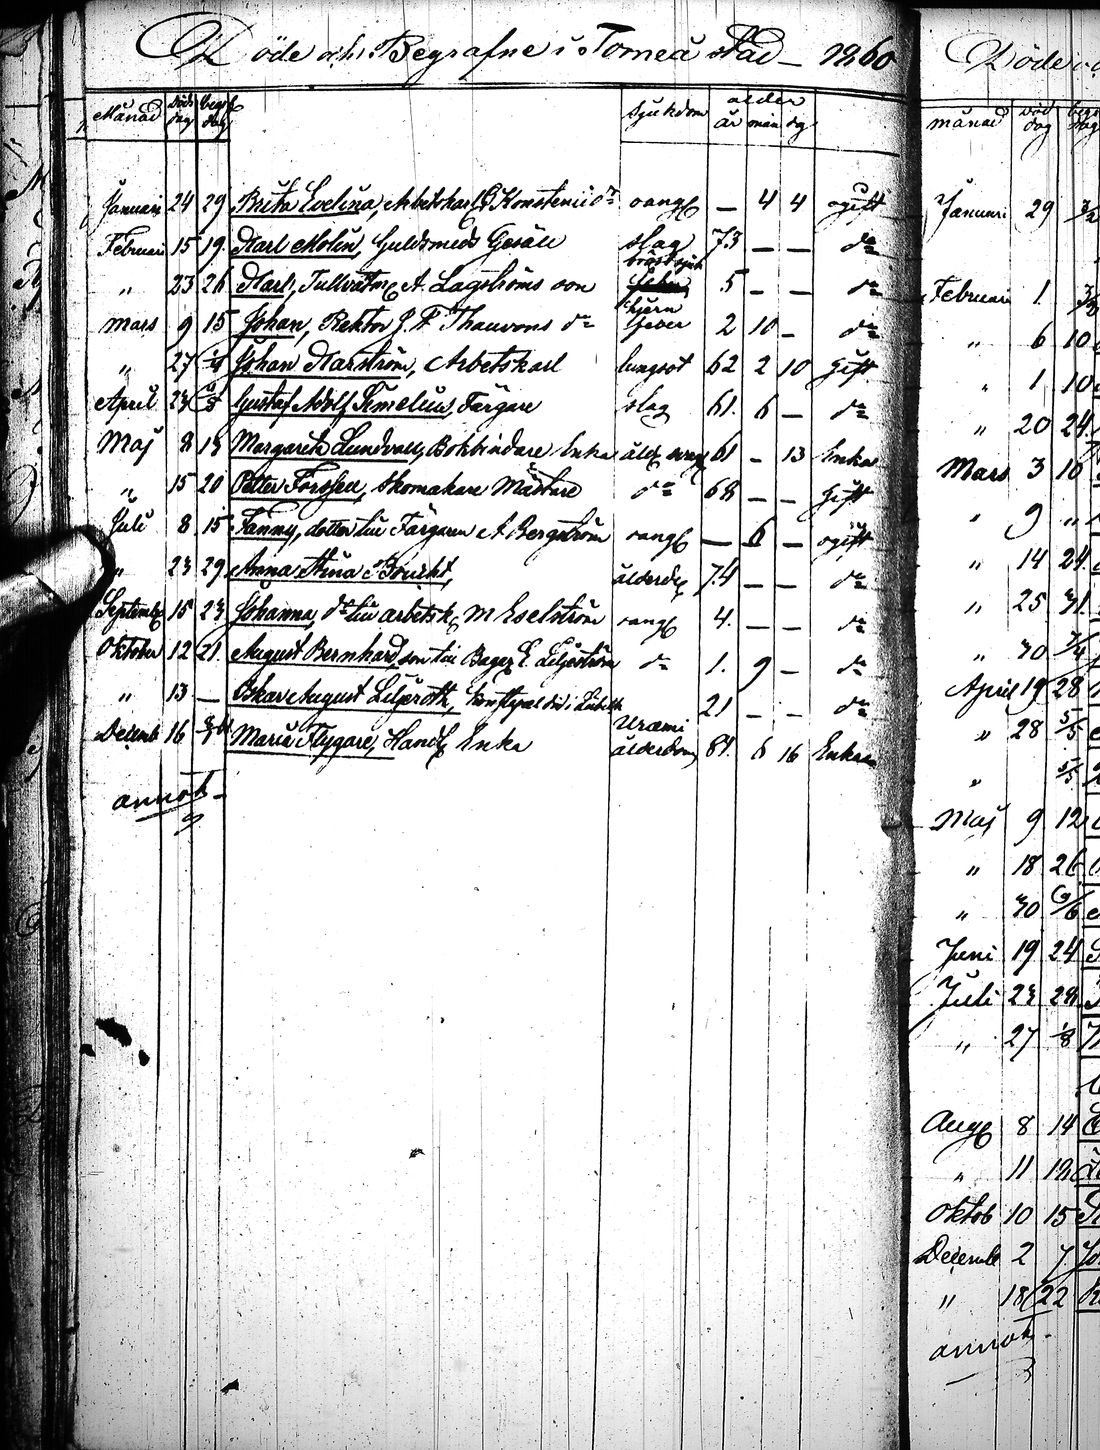 Döde och Begrafne i Torneå stad – 1860
Månad död dag begr dag sjukdom ålder år mån dg
Januari 24 29 Brita Evelina, Arbetskarl dr oangf — 4 4 ogift
Februari 15 19 Karl Molin, Guldsmeds Gesäll slag 73 — — do
bröstsjuk
" 23 26 Karl, Tullvaktm A. Lagströms son 5 — — do
hjern
Mars 9 15 Johan, Rektor J. F. Thauvons do feber 2 10 – do
" 27 Johan Harström, Arbetskarl lungsot 62 2 10 Gift
April 23 Gustaf Adolf Färgare slag 61. 6 — do
Maj 8 13 Margareta Lundvall, Bokbindare Enka åld 61 – 13 Enka
" 15 20 Petter Forssell, Skomakare Mästare do 68 — — Gift
Juli 8 15 Fanny, dotter till Färgaren A Bergström oangf — 6 — ogift
" 23 29 Anna Stina ålderd 74 — — do
Septemb 15 23 Johanna, dr till arbetsk M Eselström oangf 4. — — do
Oktober 12 21. August Bernhard, son till Bagar E. Liljeström do 1. 9 – do
" 13 — Oskar August Liljeroth, i Lübeck 21 – – do
Uræmi
Decemb 16 Maria Flygare, Handl Enka ålderdom 81. 6 16 Enka
annot.
Döde
månad död dag
Januari 29
Februari 1
" 6 10
" 1 10
" 20 24
Mars 3 10
" 9 "
" 14 24
" 25 31
" 30 7/4
April 19 28
" 28 5/5
" 5/5
Maj 9 12
" 18 26
" 30 6/6
Juni 19 24
Juli 23 28
" 27 1/8
Aug 8 14
" 11 12
Oktob 10 15
Decemb 2 7
" 18 22
annot.